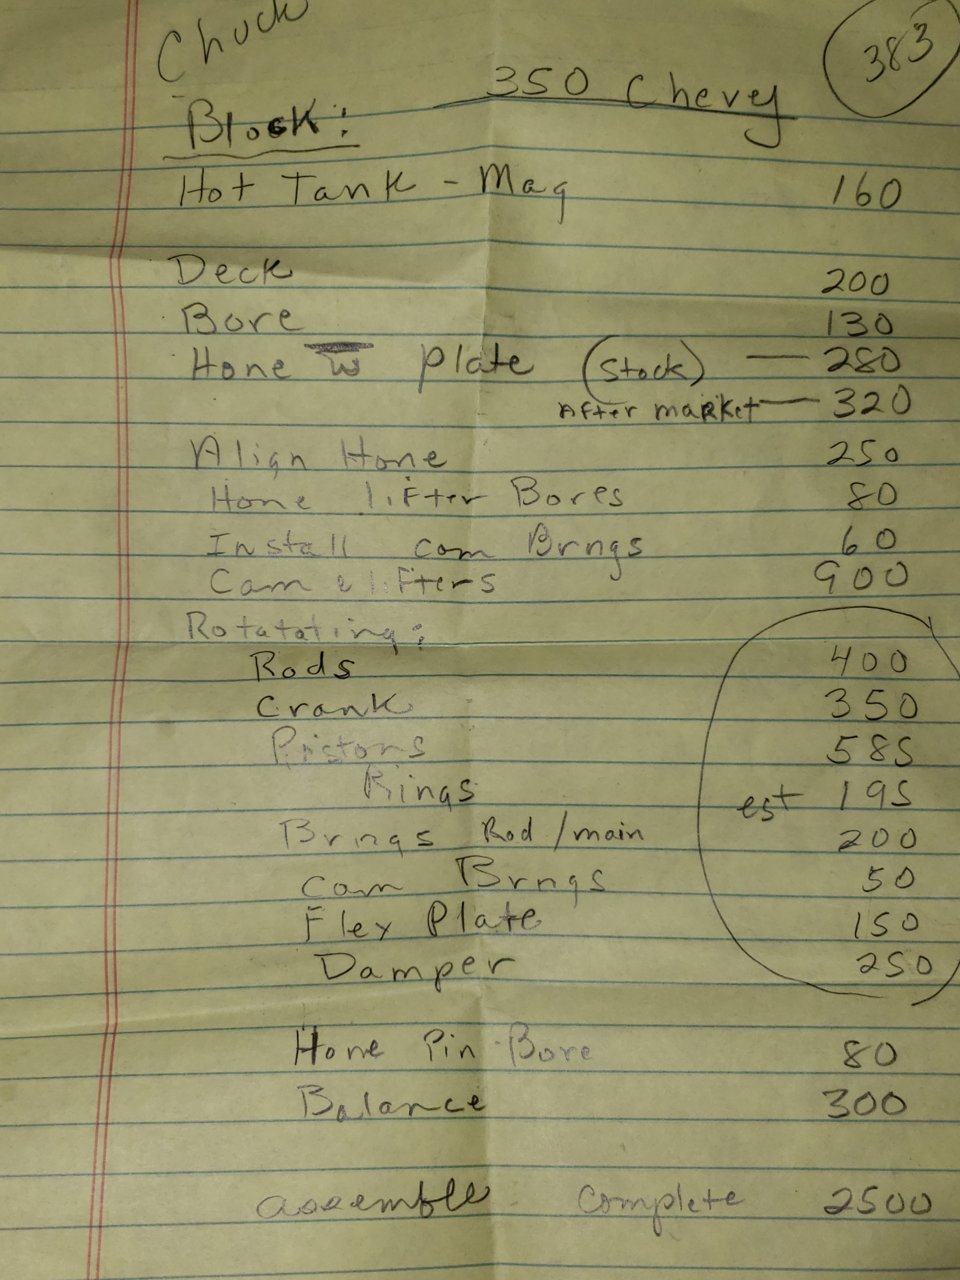 Chuck
383
350 Chevy
Block:
Hot Tank - Mag 160
Deck 200
Bore 130
Hone w plate (Stock) — 280
After market — 320
Align Hone 250
Hone lifter Bores 80
Install cam Brngs 60
Cam & lifters 900
Rotatating:
Rods 400
Crank 350
Pistons 585
Rings est 195
Brngs Rod/main 200
Cam Brngs 50
Flex Plate 150
Damper 250
Hone Pin Bore 80
Balance 300
assemble Complete 2500